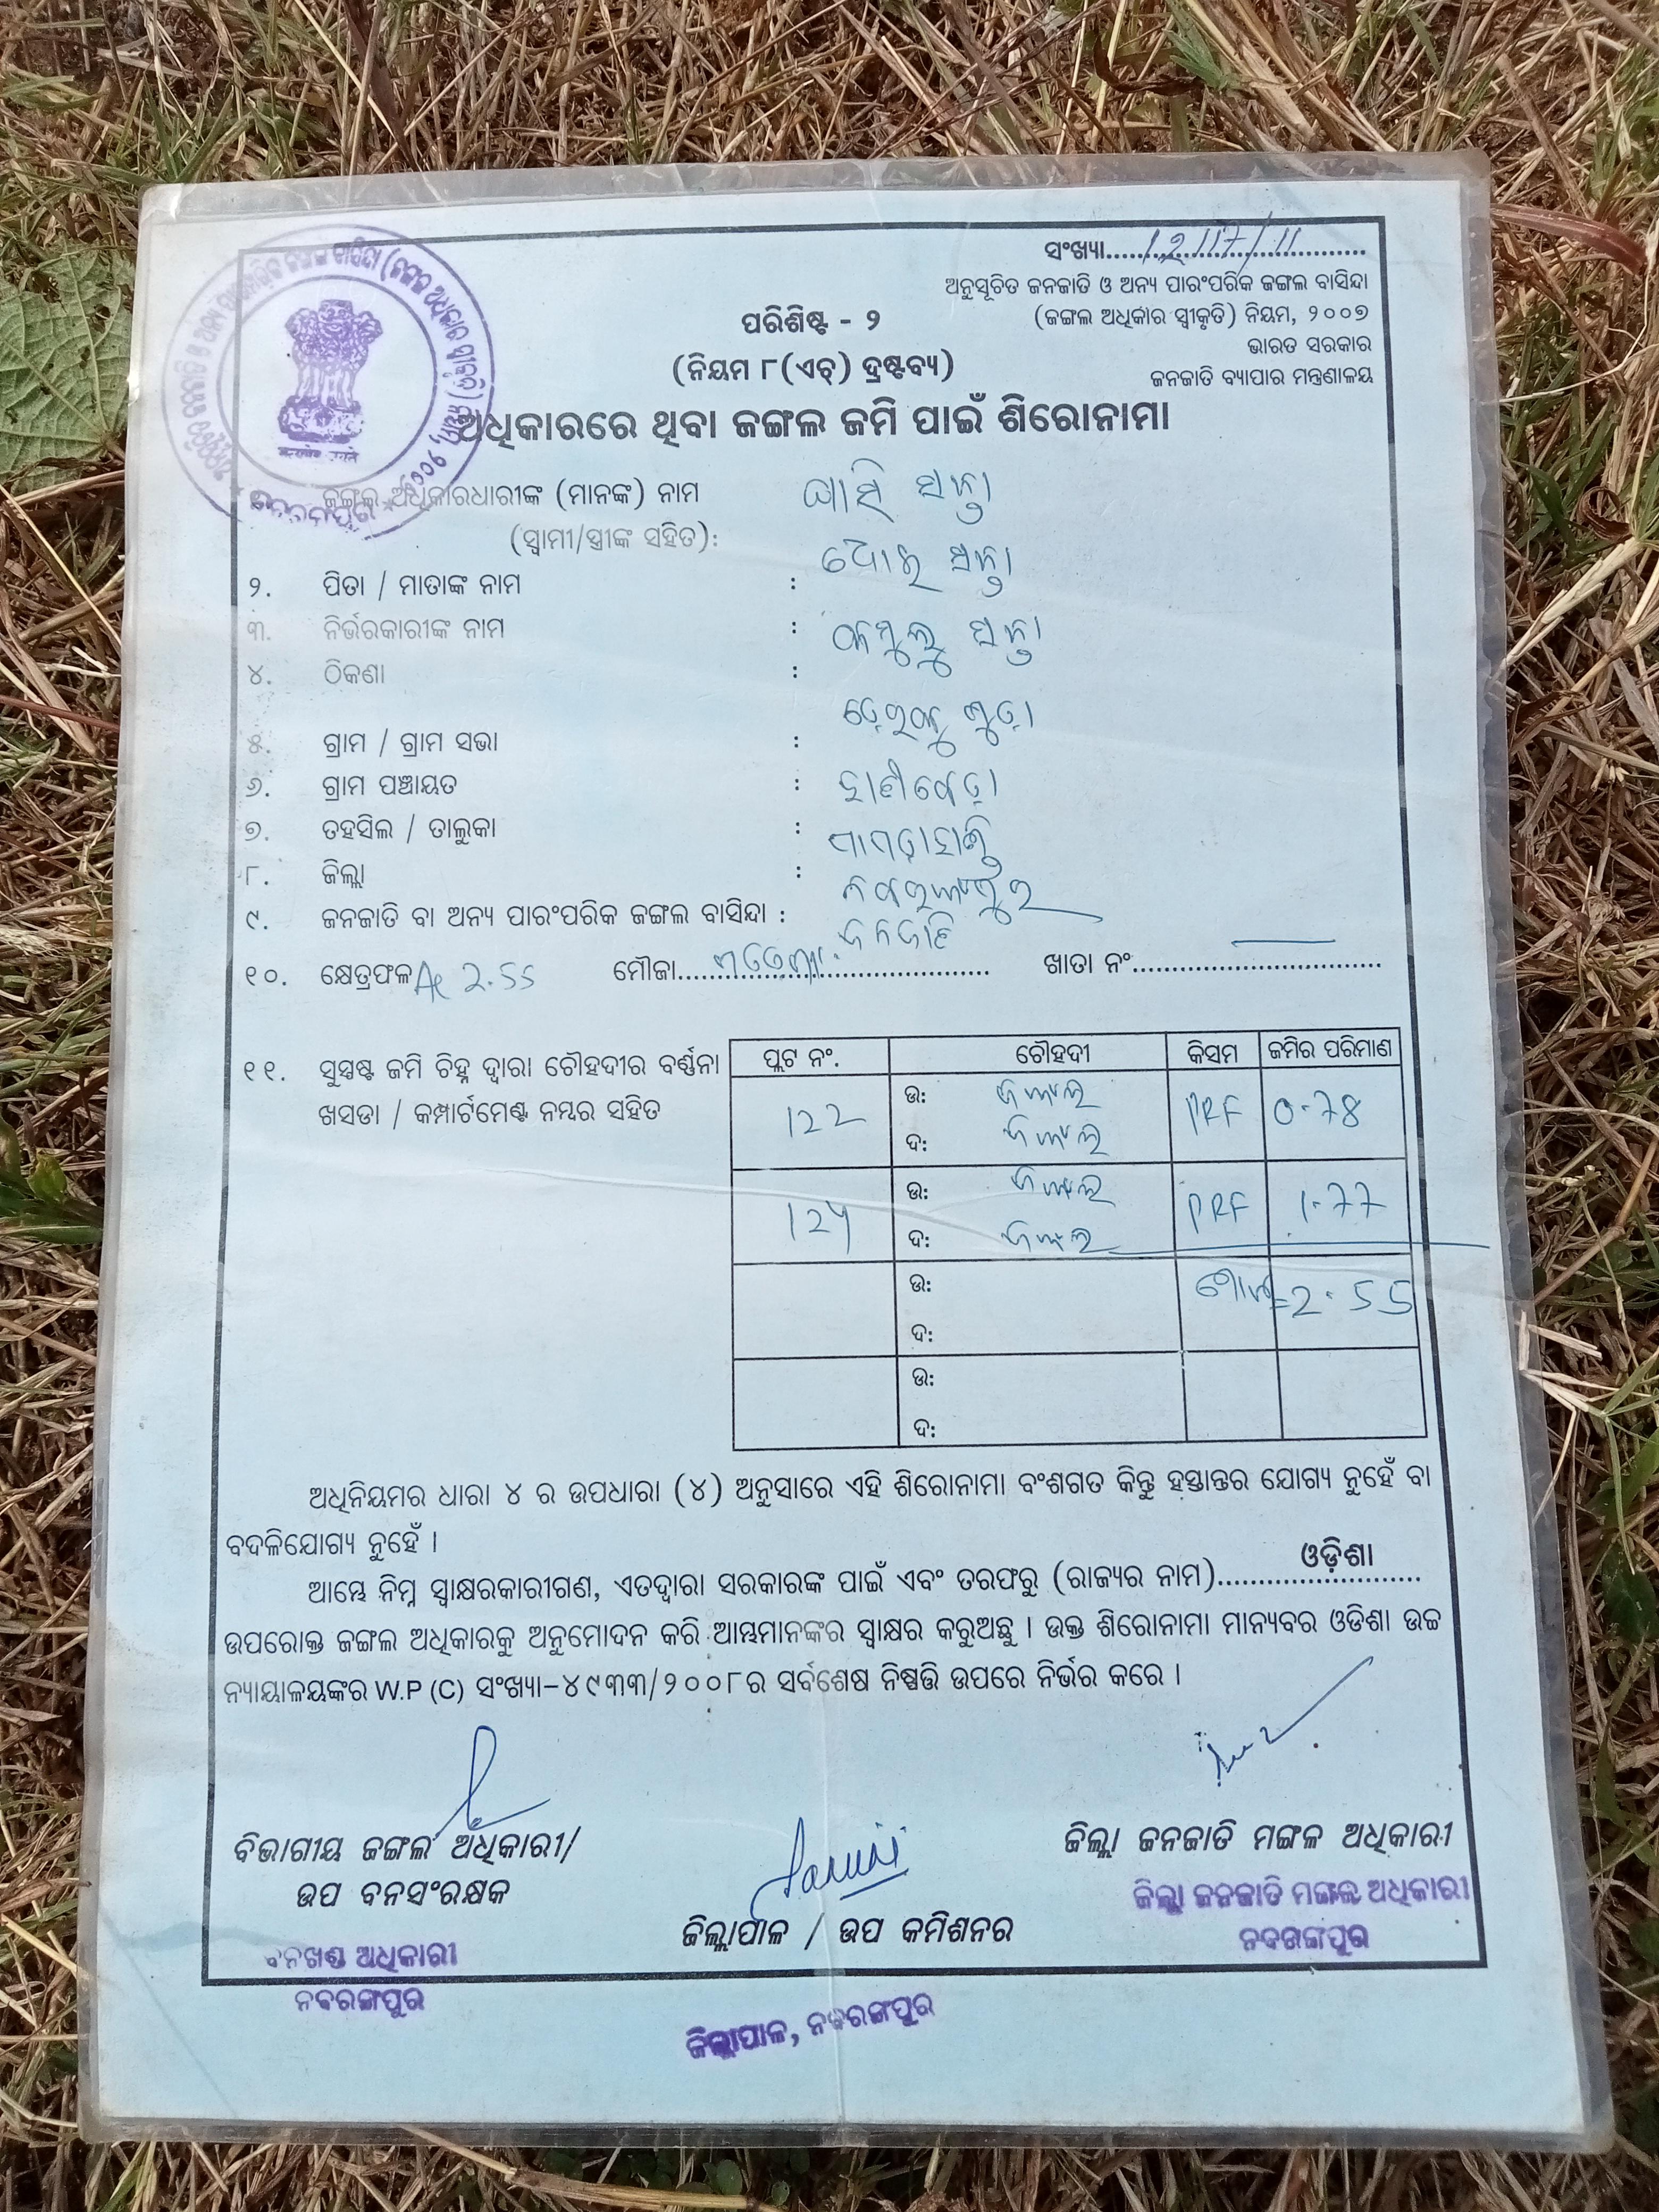 ସଂଖ୍ୟା..............
ଅନୁସୂଚିତ ଜନଜାତି ଓ ଅନ୍ୟ ପାରଂପରିକ ଜଙ୍ଗଲ ବାସିନ୍ଦା
ପରିଶିଷ୍ଟ - ୨
(ଜଙ୍ଗଲ ଅଧିକାର ସ୍ୱୀକୃତି) ନିୟମ, ୨୦୦୭
ଭାରତ ସରକାର
(ନିୟମ ୮(ଏଚ୍) ଦ୍ରଷ୍ଟବ୍ୟ)
ଜନଜାତି ବ୍ୟାପାର ମନ୍ତ୍ରଣାଳୟ
ଅଧିକାରରେ ଥିବା ଜଙ୍ଗଲ ଜମି ପାଇଁ ଶିରୋନାମା
ଜଙ୍ଗଲ ଅଧିକାରଧାରୀଙ୍କ (ମାନଙ୍କ) ନାମ
(ସ୍ୱାମୀ/ସ୍ତ୍ରୀଙ୍କ ସହିତ):
୨. ପିତା / ମାତାଙ୍କ ନାମ :
୩. ନିର୍ଭରକାରୀଙ୍କ ନାମ :
୪. ଠିକଣା :
୫. ଗ୍ରାମ / ଗ୍ରାମ ସଭା :
୬. ଗ୍ରାମ ପଞ୍ଚାୟତ :
୭. ତହସିଲ / ତାଲୁକା :
୮. ଜିଲ୍ଲା : ନବରଙ୍ଗପୁର
୯. ଜନଜାତି ବା ଅନ୍ୟ ପାରଂପରିକ ଜଙ୍ଗଲ ବାସିନ୍ଦା : ଜନଜାତି
୧୦. କ୍ଷେତ୍ରଫଳ Ac 2.55 ମୌଜା.............. ଖାତା ନଂ..............
୧୧. ସୁସ୍ପଷ୍ଟ ଜମି ଚିହ୍ନ ଦ୍ୱାରା ଚୌହଦୀର ବର୍ଣ୍ଣନା
ଖସଡା / କମ୍ପାର୍ଟମେଣ୍ଟ ନମ୍ବର ସହିତ
ପ୍ଲଟ ନଂ. ଚୌହଦୀ କିସମ ଜମିର ପରିମାଣ
122 ଉ: ଜଙ୍ଗଲ PRF 0.78
ଦ: ଜଙ୍ଗଲ
124 ଉ: ଜଙ୍ଗଲ PRF 1.77
ଦ: ଜଙ୍ଗଲ
ଉ: =2.55
ଦ:
ଉ:
ଦ:
ଅଧିନିୟମର ଧାରା ୪ ର ଉପଧାରା (୪) ଅନୁସାରେ ଏହି ଶିରୋନାମା ବଂଶଗତ କିନ୍ତୁ ହସ୍ତାନ୍ତର ଯୋଗ୍ୟ ନୁହେଁ ବା
ବଦଳିଯୋଗ୍ୟ ନୁହେଁ ।
ଆମ୍ଭେ ନିମ୍ନ ସ୍ୱାକ୍ଷରକାରୀଗଣ, ଏତଦ୍ୱାରା ସରକାରଙ୍କ ପାଇଁ ଏବଂ ତରଫରୁ (ରାଜ୍ୟର ନାମ)....ଓଡ଼ିଶା....
ଉପରୋକ୍ତ ଜଙ୍ଗଲ ଅଧିକାରକୁ ଅନୁମୋଦନ କରି ଆମ୍ଭମାନଙ୍କର ସ୍ୱାକ୍ଷର କରୁଅଛୁ । ଉକ୍ତ ଶିରୋନାମା ମାନ୍ୟବର ଓଡିଶା ଉଚ୍ଚ
ନ୍ୟାୟାଳୟଙ୍କର W.P (C) ସଂଖ୍ୟା-୪୯୩୩/୨୦୦୮ର ସର୍ବଶେଷ ନିଷ୍ପତ୍ତି ଉପରେ ନିର୍ଭର କରେ ।
ବିଭାଗୀୟ ଜଙ୍ଗଲ ଅଧିକାରୀ/
ଉପ ବନସଂରକ୍ଷକ
ବନଖଣ୍ଡ ଅଧିକାରୀ
ନବରଙ୍ଗପୁର
ଜିଲ୍ଲାପାଳ / ଉପ କମିଶନର
ଜିଲ୍ଲାପାଳ, ନବରଙ୍ଗପୁର
ଜିଲ୍ଲା ଜନଜାତି ମଙ୍ଗଳ ଅଧିକାରୀ
ଜିଲ୍ଲା ଜନଜାତି ମଙ୍ଗଳ ଅଧିକାରୀ
ନବରଙ୍ଗପୁର